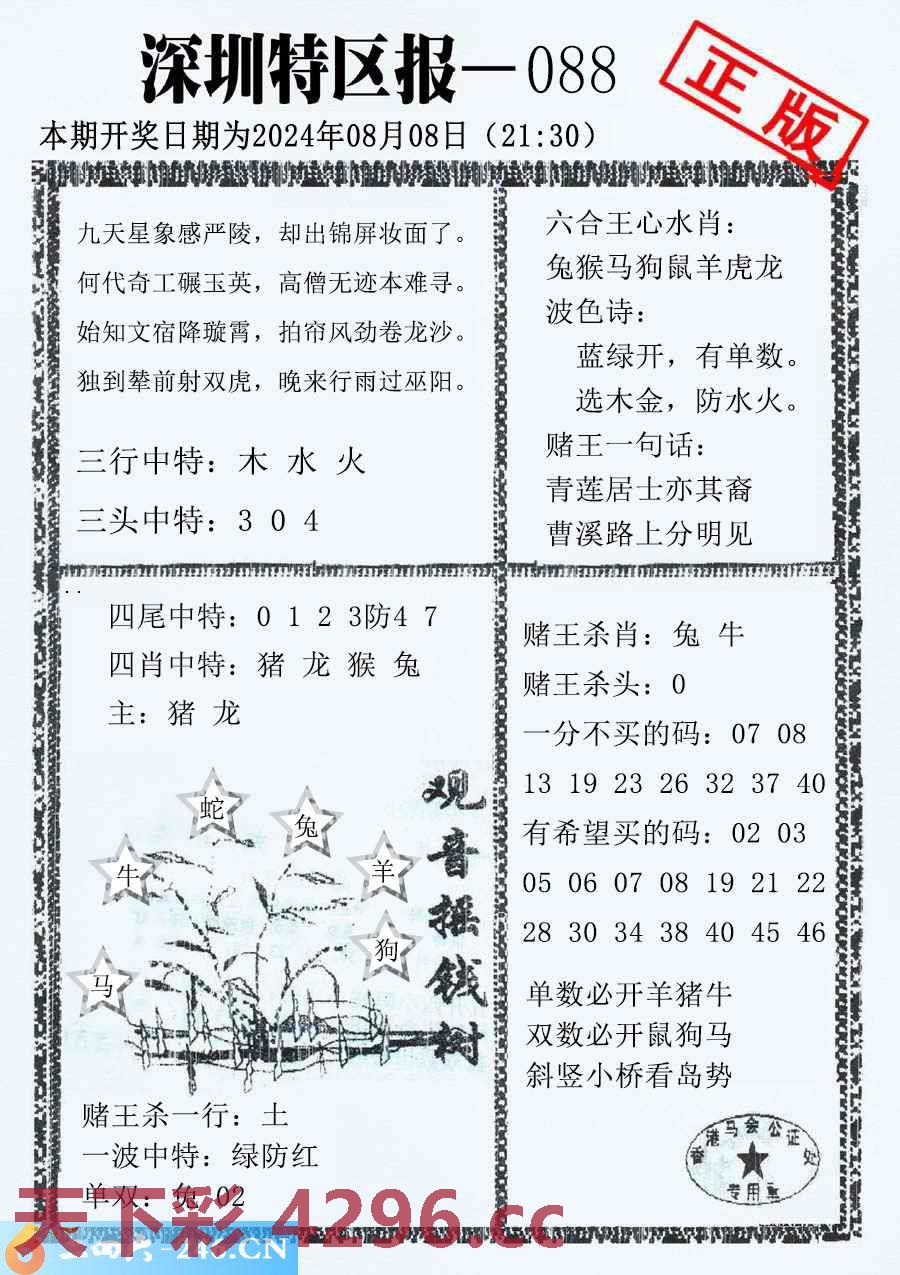 深圳特区报—088
正版
本期开奖日期为2024年08月08日（21:30）
九天星象感严陵，却出锦屏妆面了。
何代奇工碾玉英，高僧无迹本难寻。
始知文宿降璇霄，拍帘风劲卷龙沙。
独到辇前射双虎，晚来行雨过巫阳。
三行中特：木 水 火
三头中特：3 0 4
六合王心水肖：
兔猴马狗鼠羊虎龙
波色诗：
蓝绿开，有单数。
选木金，防水火。
赌王一句话：
青莲居士亦其裔
曹溪路上分明见
四尾中特：0 1 2 3防4 7
四肖中特：猪 龙 猴 兔
主：猪 龙
蛇
兔
牛
羊
狗
马
观音摇钱树
赌王杀一行：土
一波中特：绿防红
单双：兔 02
赌王杀肖：兔 牛
赌王杀头：0
一分不买的码：07 08
13 19 23 26 32 37 40
有希望买的码：02 03
05 06 07 08 19 21 22
28 30 34 38 40 45 46
单数必开羊猪牛
双数必开鼠狗马
斜竖小桥看岛势
香港马会公证处
专用章
天下彩 4296.cc
246.CN